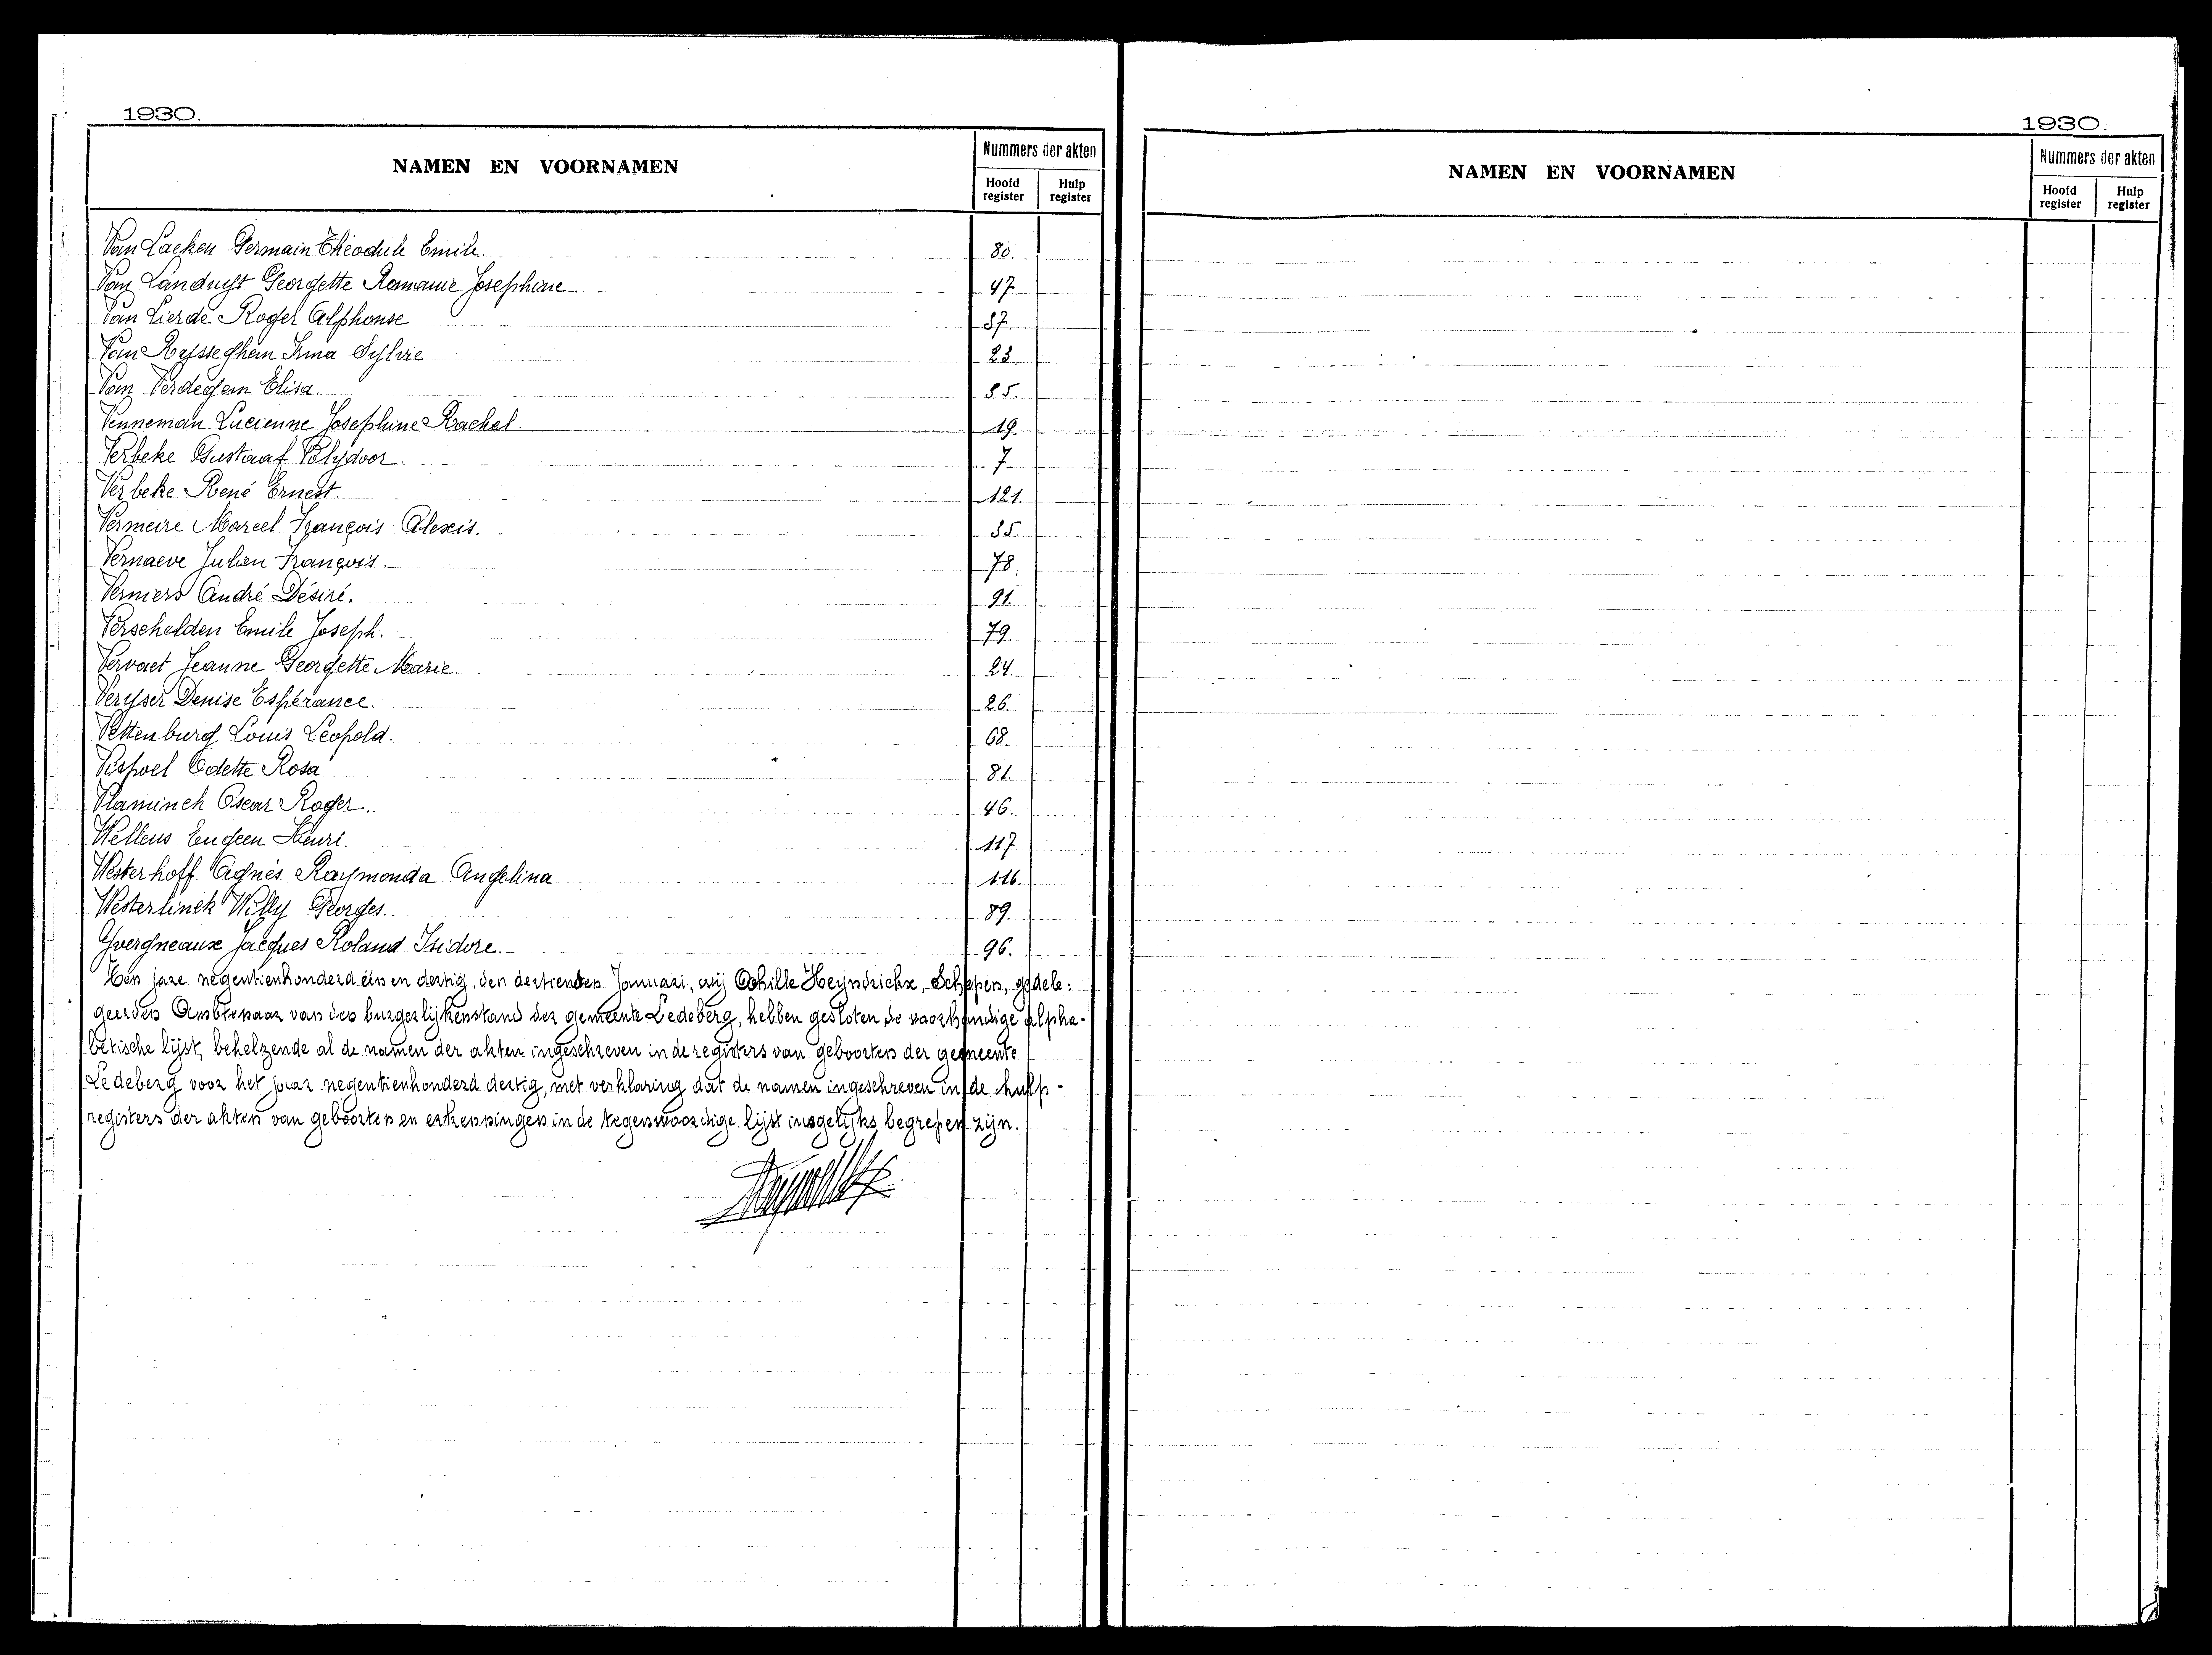 1930.
NAMEN EN VOORNAMEN
Nummers der akten
Hoofd register
Hulp register
Van Laeken Germain Théodule Emile. 80.
Van Landuyt Georgette Romanie Josephine 47.
Van Lierde Roger Alphonse 37.
Van Rysseghem Irma Sylvie 23.
Van Verdegem Elisa. 35.
Venneman Lucienne Josephine Rachel. 19.
Verbeke Gustaaf Polydoor. 7
Verbeke René Ernest. 121.
Vermeire Marcel François Alexis. 55.
Vernaeve Julien François. 78.
Verniers André Désiré. 91.
Verschelden Emile Joseph. 79.
Vervaet Jeanne Georgette Marie 24.
Veryser Denise Espérance. 26.
Vettenburg Louis Léopold. 68.
Vispoel Odette Rosa 81.
Vlaminck Oscar Roger. 46.
Wellens Eugeen Henri. 117.
Westerhoff Agnès Raymonda Angelina 116.
Westerlinck Willy Georges. 89.
Yvergneaux Jacques Roland Isidore. 96.
Ten jare negentienhonderd één en dertig, den dertienden Januari, wij Achille Heyndrickx, Schepen, gedele:
geerden Ambtenaar van den burgerlijkenstand der gemeente Ledeberg, hebben gesloten de voorhandige alpha-
betische lijst, behelzende al de namen der akten ingeschreven in de registers van geboorten der gemeente
Ledeberg voor het jaar negentienhonderd dertig, met verklaring dat de namen ingeschreven in de hulp-
registers der akten van geboorten en erkenningen in de tegenwoordige lijst insgelijks begrepen zijn.
1930.
NAMEN EN VOORNAMEN
Nummers der akten
Hoofd register
Hulp register